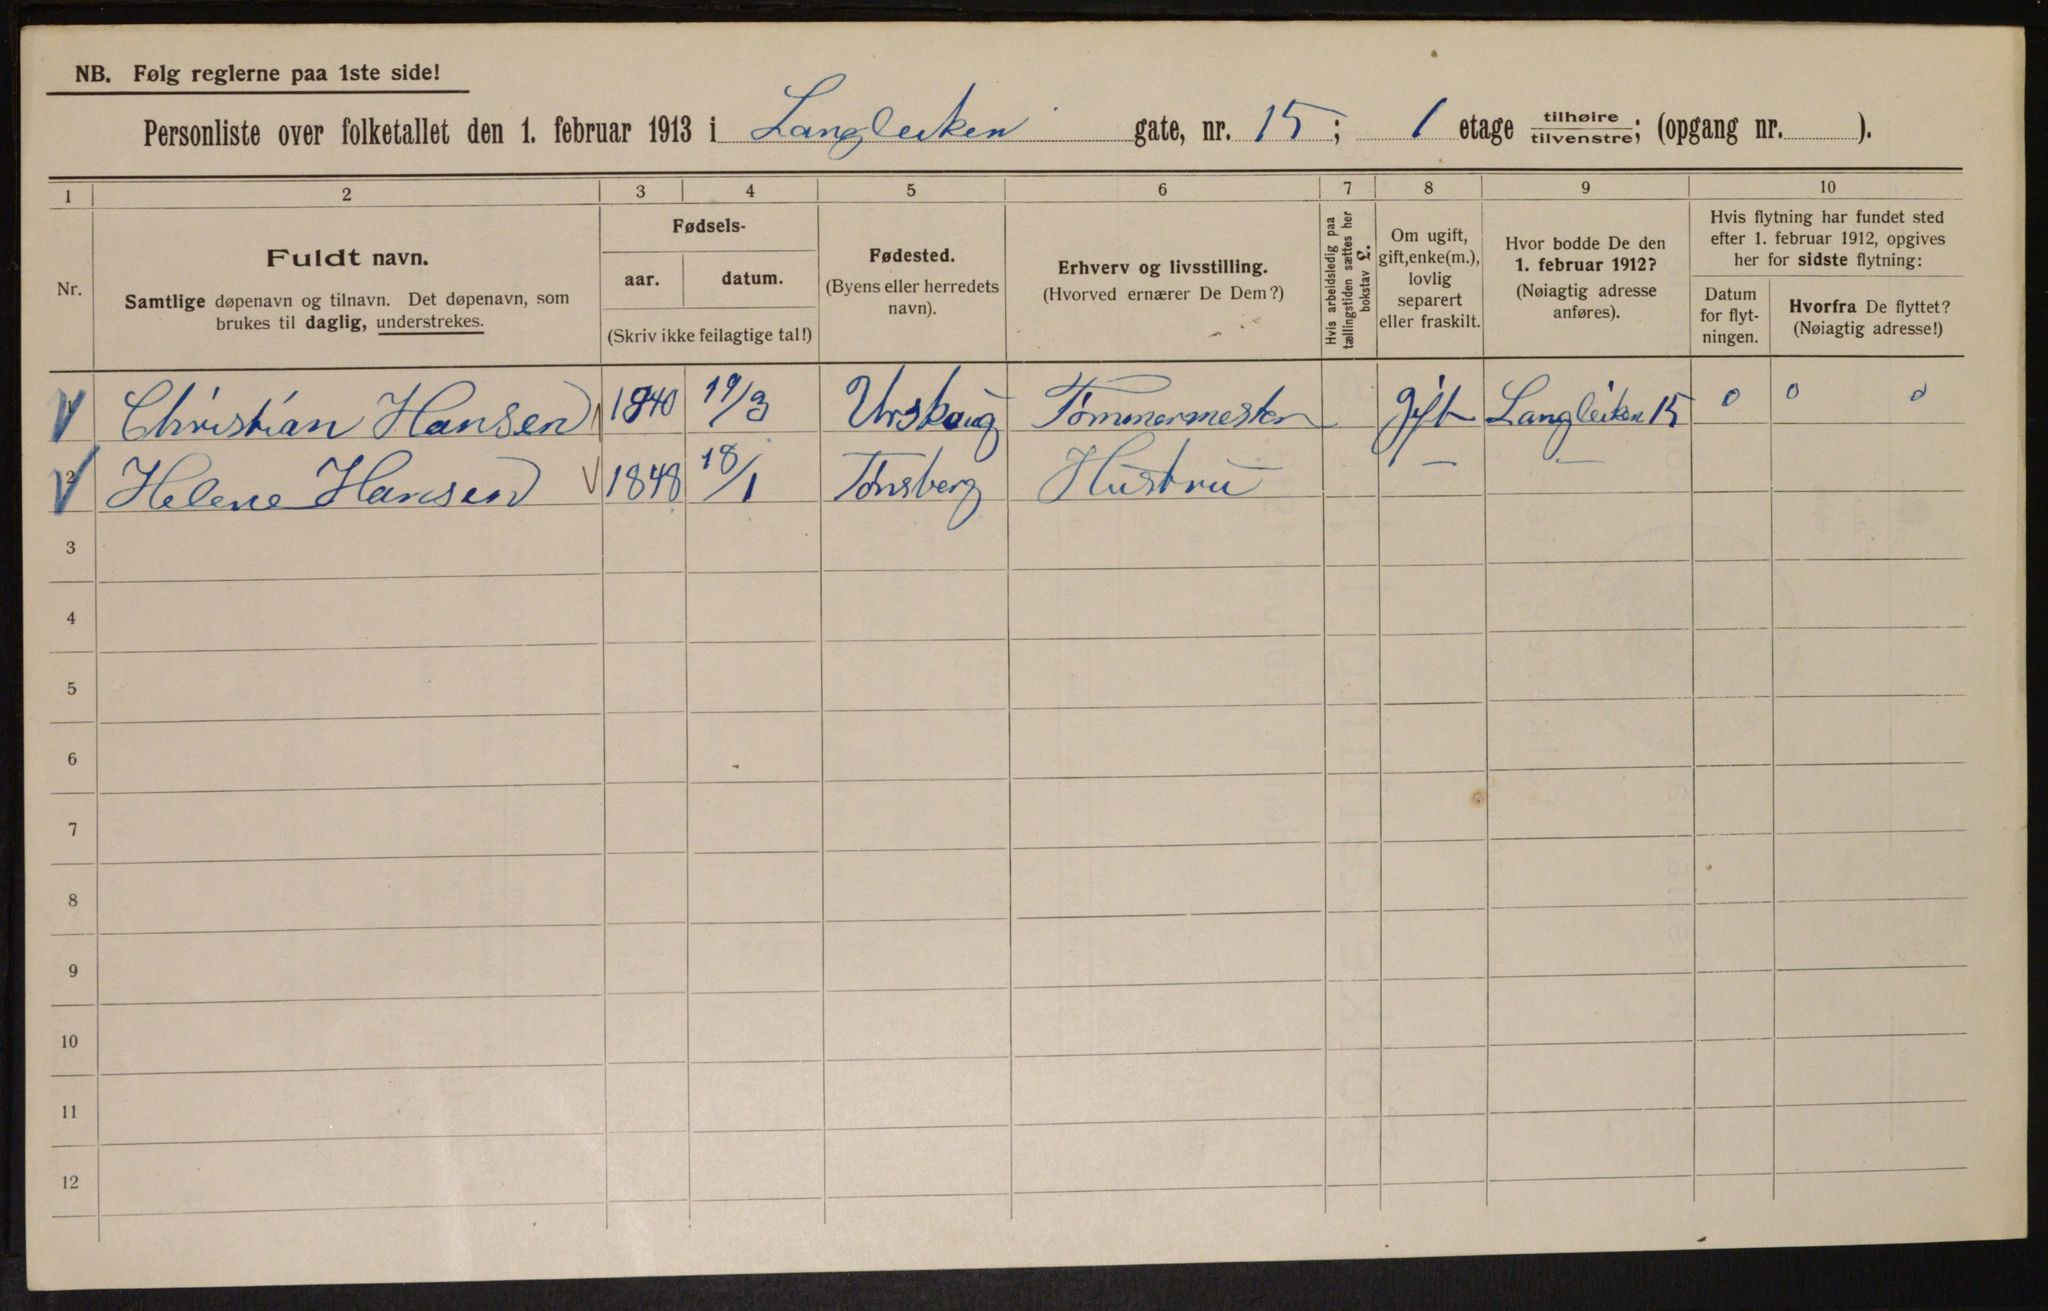 NB. Følg reglerne paa 1ste side!
Personliste over folketallet den 1. februar 1913 i Langleiken gate, nr. 15; 1 etage tilhøire/tilvenstre; (opgang nr. ).
1 2 3 4 5 6 7 8 9 10
Nr.
Fuldt navn.
Samtlige døpenavn og tilnavn. Det døpenavn, som
brukes til daglig, understrekes.
Fødsels-
aar. datum.
(Skriv ikke feilagtige tal!)
Fødested.
(Byens eller herredets
navn).
Erhverv og livsstilling.
(Hvorved ernærer De Dem?)
Hvis arbeidsledig paa
tællingstiden sættes her
bokstav L.
Om ugift,
gift, enke(m.),
lovlig
separert
eller fraskilt.
Hvor bodde De den
1. februar 1912?
(Nøiagtig adresse
anføres).
Hvis flytning har fundet sted
efter 1. februar 1912, opgives
her for sidste flytning:
Datum
for flyt-
ningen.
Hvorfra De flyttet?
(Nøiagtig adresse!)
1 Christian Hansen 1840 19/3 Urskoug Tømmermester gift Langleiken 15 0 0 0
2 Helene Hansen 1848 18/1 Tønsberg Hustru — —
3
4
5
6
7
8
9
10
11
12